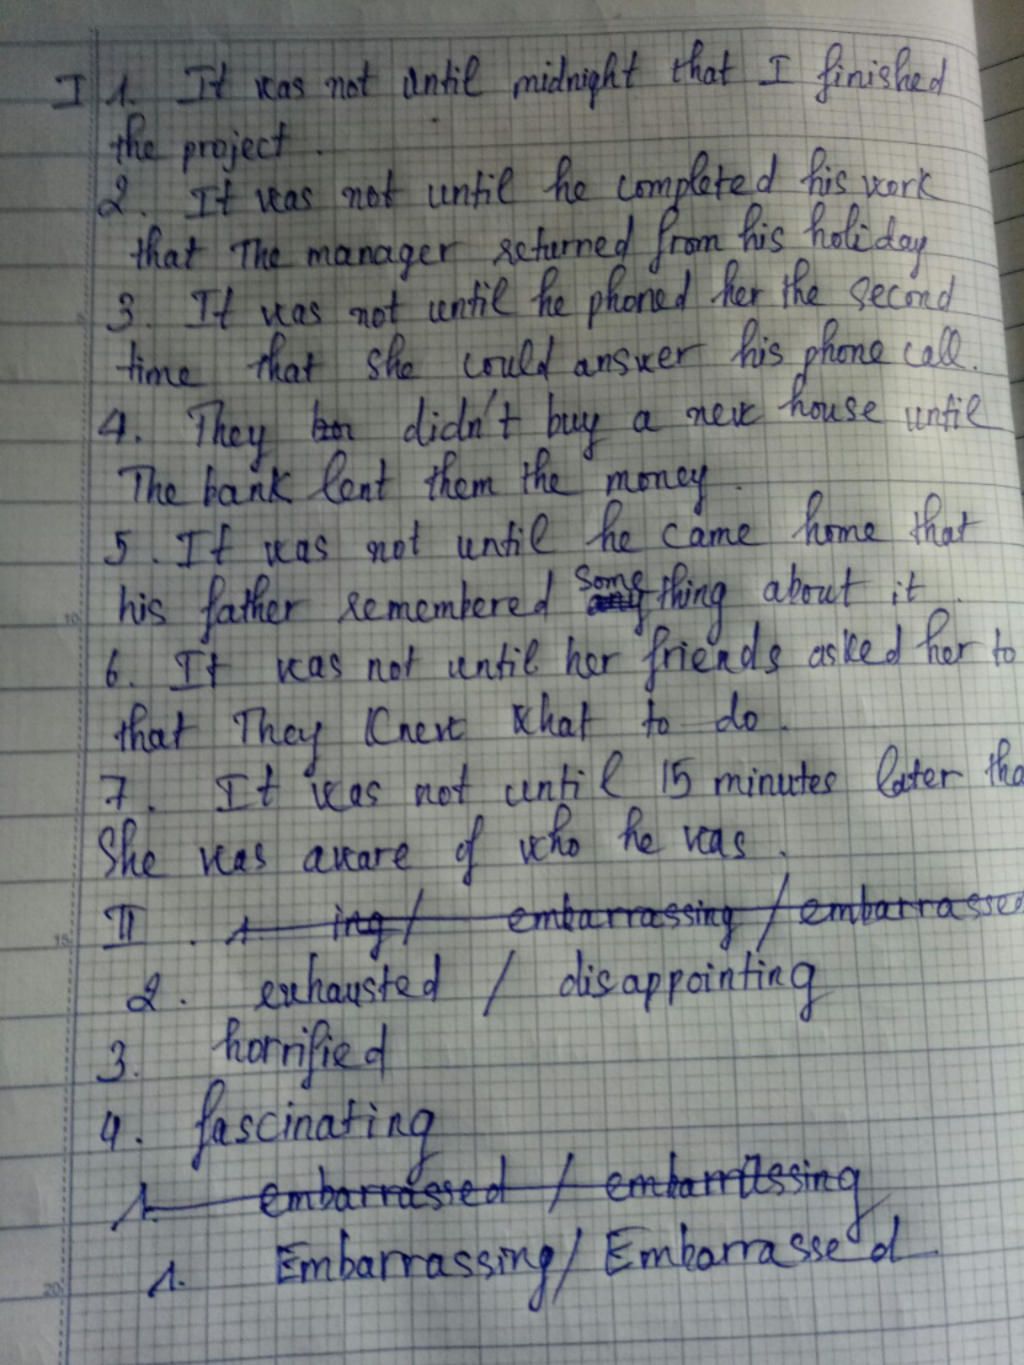 I 1. It was not until midnight that I finished
the project.
2. It was not until he completed his work
that The manager returned from his holiday
3. It was not until he phoned her the second
time that she could answer his phone call.
4. They didn't buy a new house until
The bank lent them the money.
5. It was not until he came home that
his father remembered something about it.
6. It was not until her friends asked her to
that They knew what to do.
7. It was not until 15 minutes later tha
She was aware of who he was.
II. 1 ing / embarrassing / embarrassed
2. exhausted / disappointing
3. horrified
4. fascinating
1. embarrassed / embarrassing
1. Embarrassing / Embarrassed